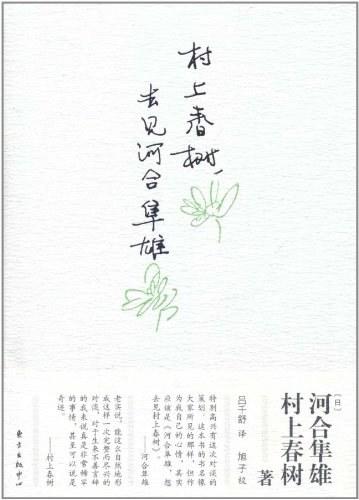 村上春树,
去见河合隼雄
[日]
河合隼雄
村上春树 著
吕千舒 译 旭子 校
特别高兴共有这次对谈的
策划。这本书的书名像
大家所见的那样,但作
为我自己的心情,其实
应该是《河合隼雄,想
去见村上春树》。
——河合隼雄
老实说,能这么自然地形
成这样一次完整而尽兴的
对谈,对于生来不善言辞
的我来说真是非常稀罕
的事情,甚至可以说是
奇迹。
——村上春树
东方出版中心